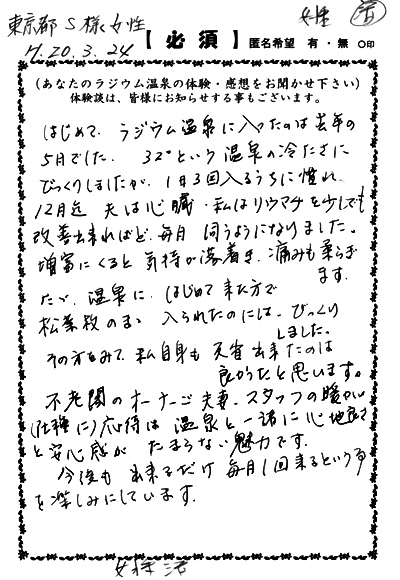 東京都 S様 女性
女性 済
H.20.3.24
【必須】 匿名希望 有・無 ○印
(あなたのラジウム温泉の体験・感想をお聞かせ下さい)
体験談は、皆様にお知らせする事もございます。
はじめて、ラジウム温泉に入ったのは去年の
5月でした。 32°という温泉の冷たさに
びっくりしましたが、1日3回入るうちに慣れ、
12月迄 夫は心臓・私はリウマチを少しでも
改善出来ればと、毎月 伺うようになりました。
増富にくると気持が落着き、痛みも柔らぎ
ます。
ただ、温泉に、はじめて来た方で
松葉杖のまゝ 入られたのには、びっくり
しました。
その方をみて、私自身も 反省出来たのは
良かったと思います。
不老閣のオーナーご夫妻、スタッフの暖かい
応待は 温泉と一緒に心地良さ
と安心感が たまらない魅力です。
今後も 出来るだけ 毎月1回来るという事
を楽しみにしています。
女様 済